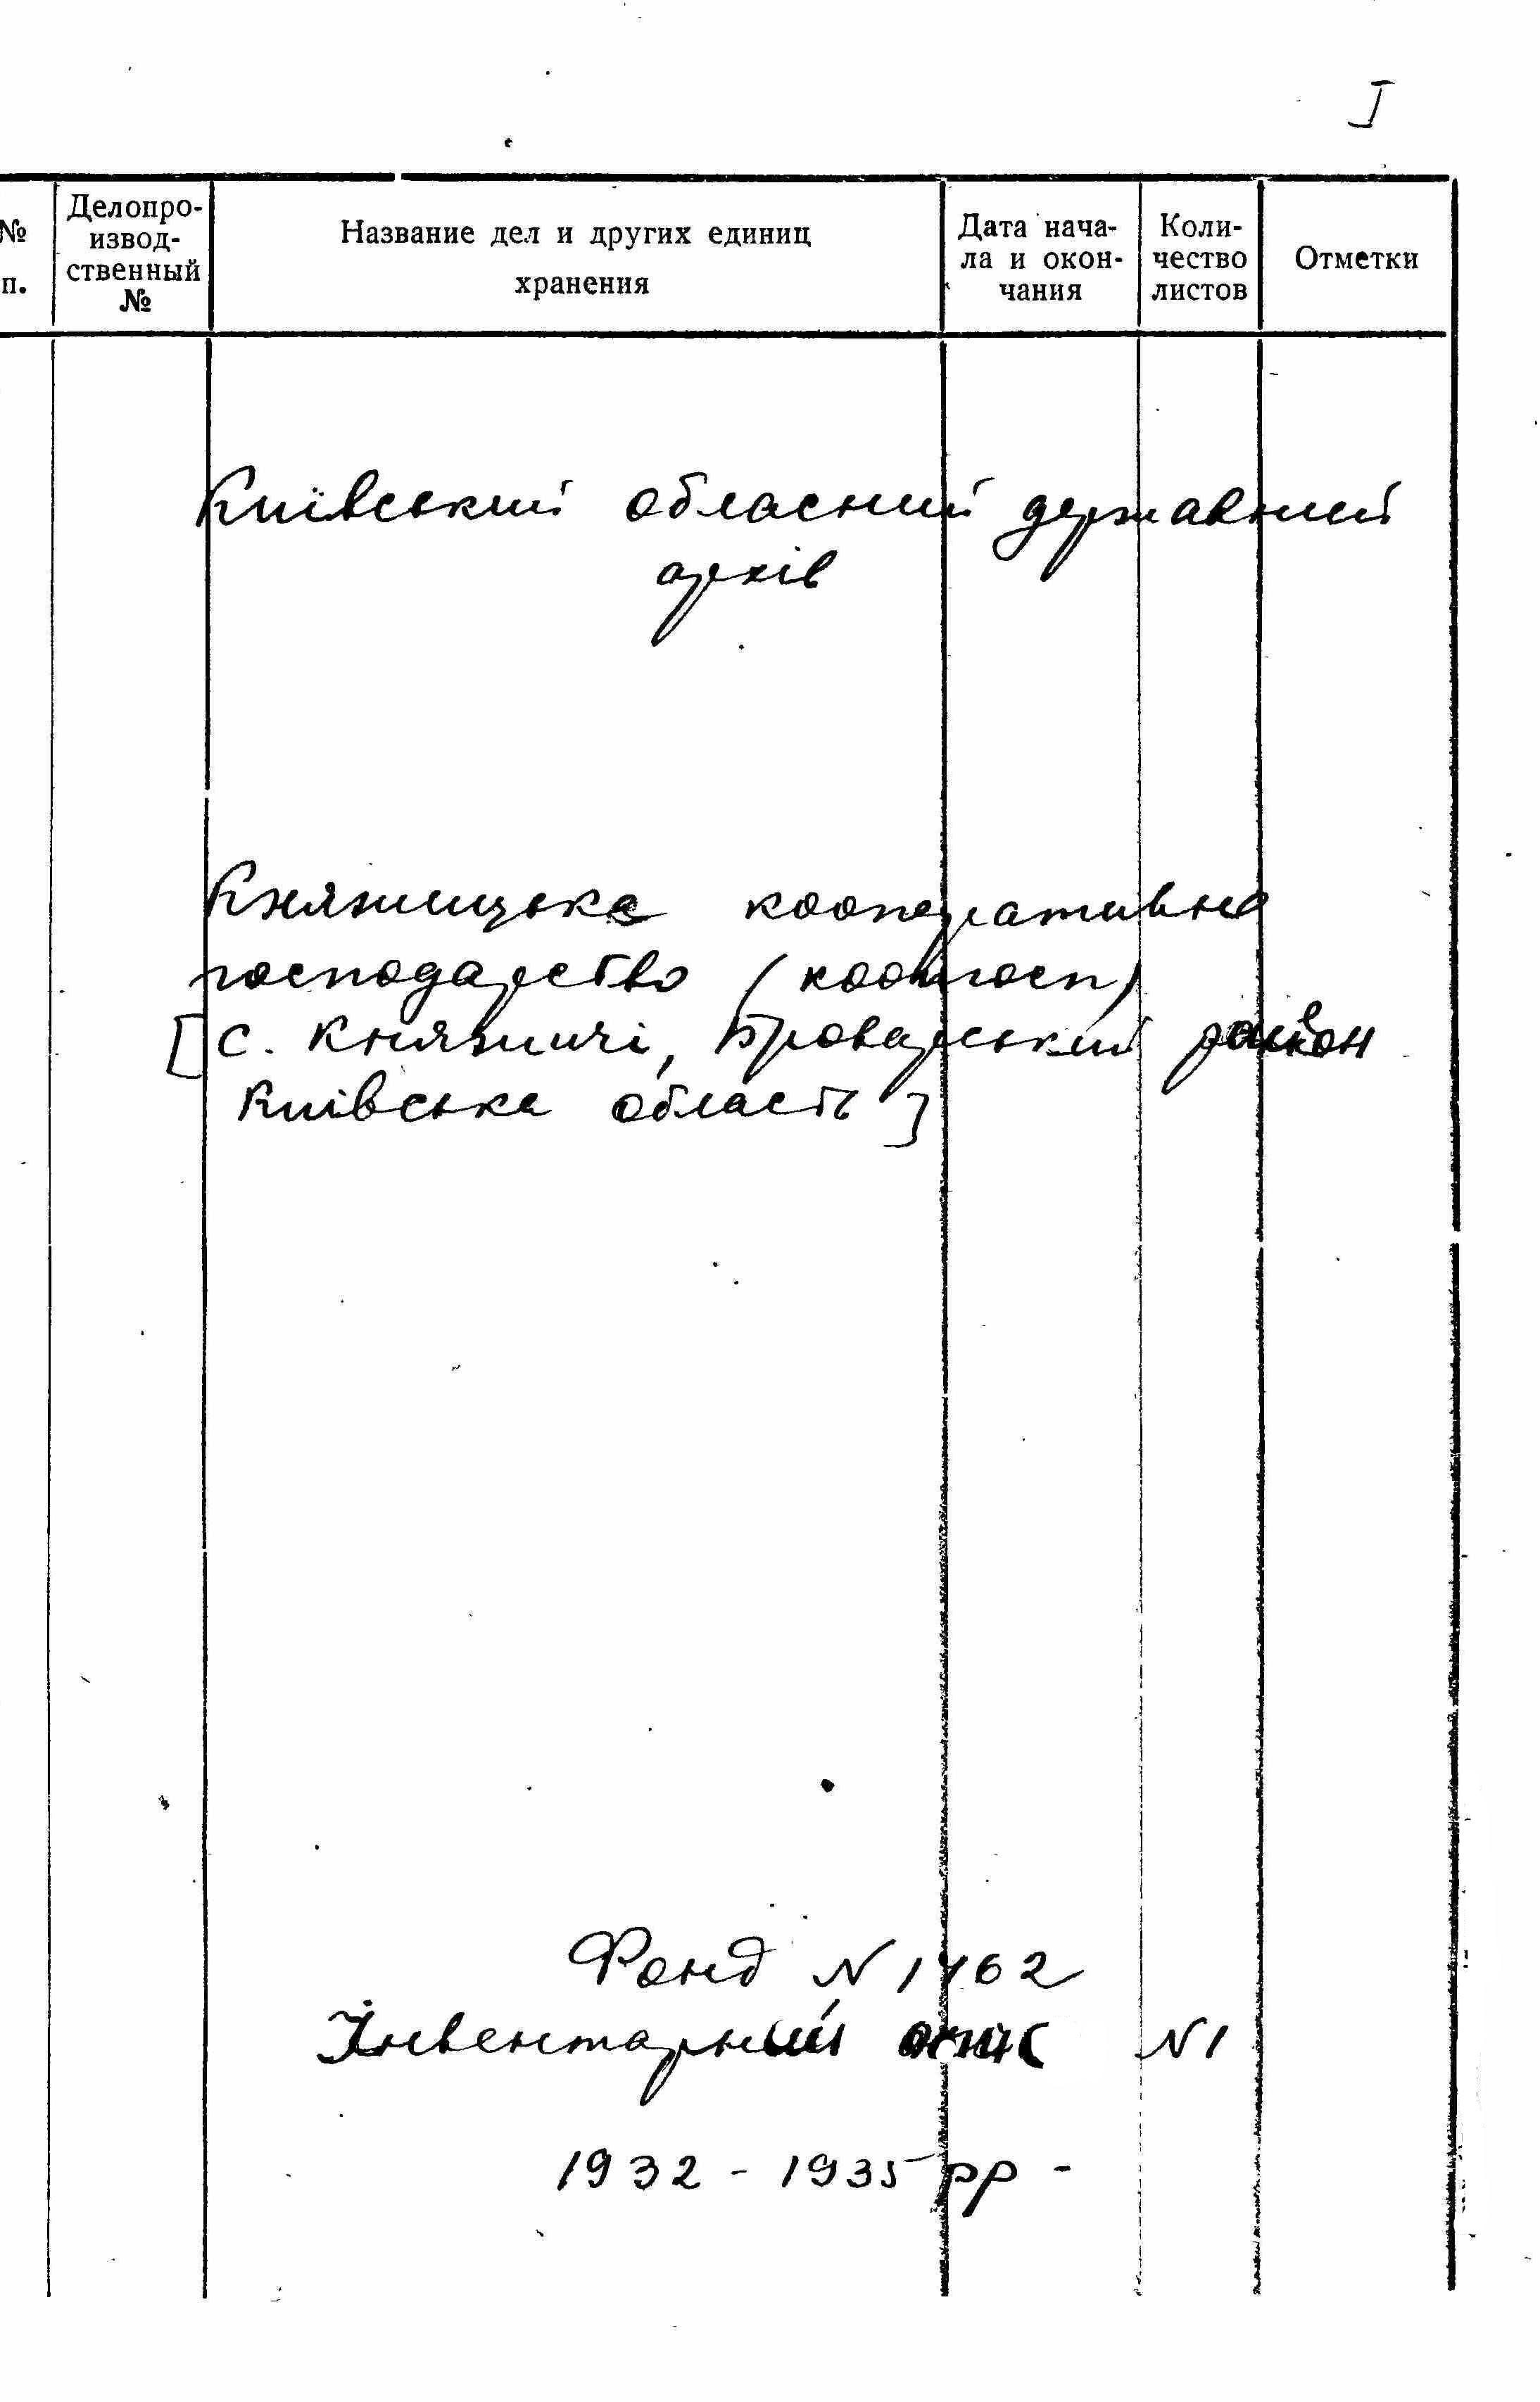 I
№
п.
Делопро-
извод-
ственный
№
Название дел и других единиц
хранения
Дата нача-
ла и окон-
чания
Коли-
чество
листов
Отметки
Київський обласний державний
архів
Княжицьке кооперативне
господарство (коопгосп)
[с. Княжичі, Броварський район
Київська область]
Фонд N 1462
Інвентарний опис N 1
1932 - 1935 рр -